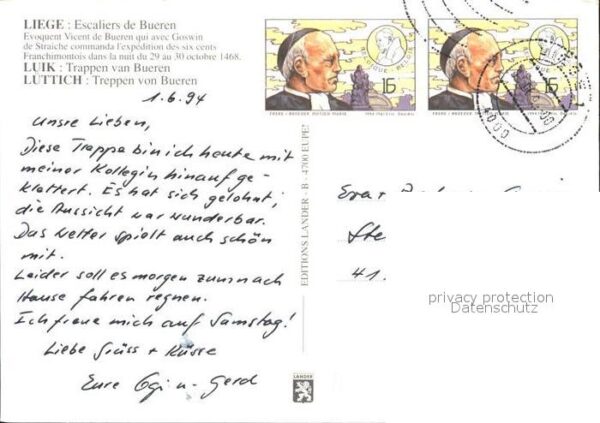 LIEGE : Escaliers de Bueren
Evoquent Vicent de Bueren qui avec Goswin
de Straiche commanda l'expédition des six cents
Franchimontois dans la nuit du 29 au 30 octobre 1468.
LUIK : Trappen van Bueren
LÜTTICH : Treppen von Bueren
1.6.94
Unsre Lieben,
Diese Trappe bin ich heute mit
meiner Kollegin hinauf ge-
klattert. Es hat sich gelohnt;
die Aussicht war wunderbar.
Das Wetter spielt auch schön
mit.
Leider soll es morgen zum nach
Hause fahren regnen.
Ich freue mich auf Samstag!
Liebe Grüss + Küsse
Eure Ogi u. Gerd
EDITIONS LANDER - B - 4700 EUPEN
LANDER
16
16
4000
Eva +
Ste
41.
privacy protection
Datenschutz